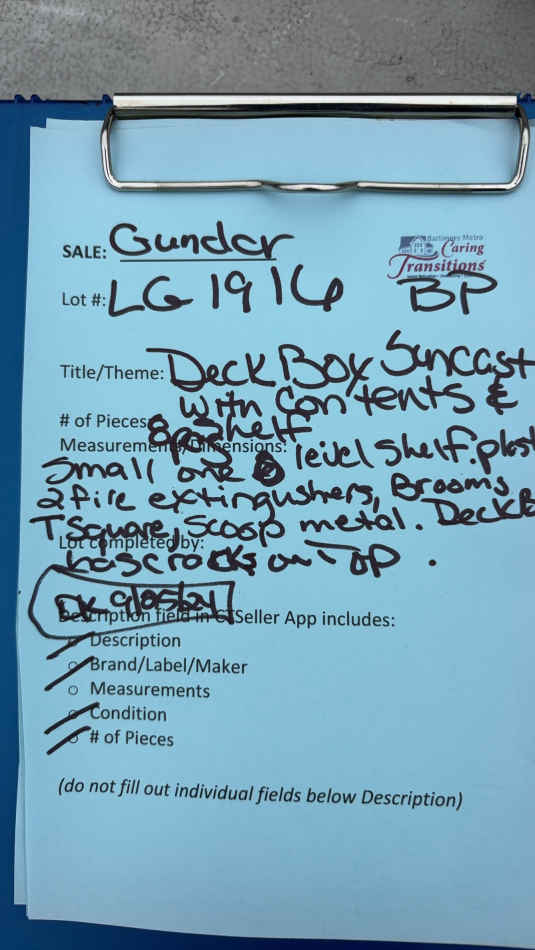 SALE: Gunder
Baltimore Metro
Caring
Transitions
Lot #: LG 1916 BP
Title/Theme: Deck Box Suncast
with contents &
# of Pieces: 8 shelf
Measurements/Dimensions:
Small one level shelf. plast
2 fire extingushers, Brooms
T square, scoop metal. DeckB
Lot completed by:
has cracks on Top .
DK 9/05/24
Description field in CTSeller App includes:
○ Description
○ Brand/Label/Maker
○ Measurements
○ Condition
○ # of Pieces
(do not fill out individual fields below Description)